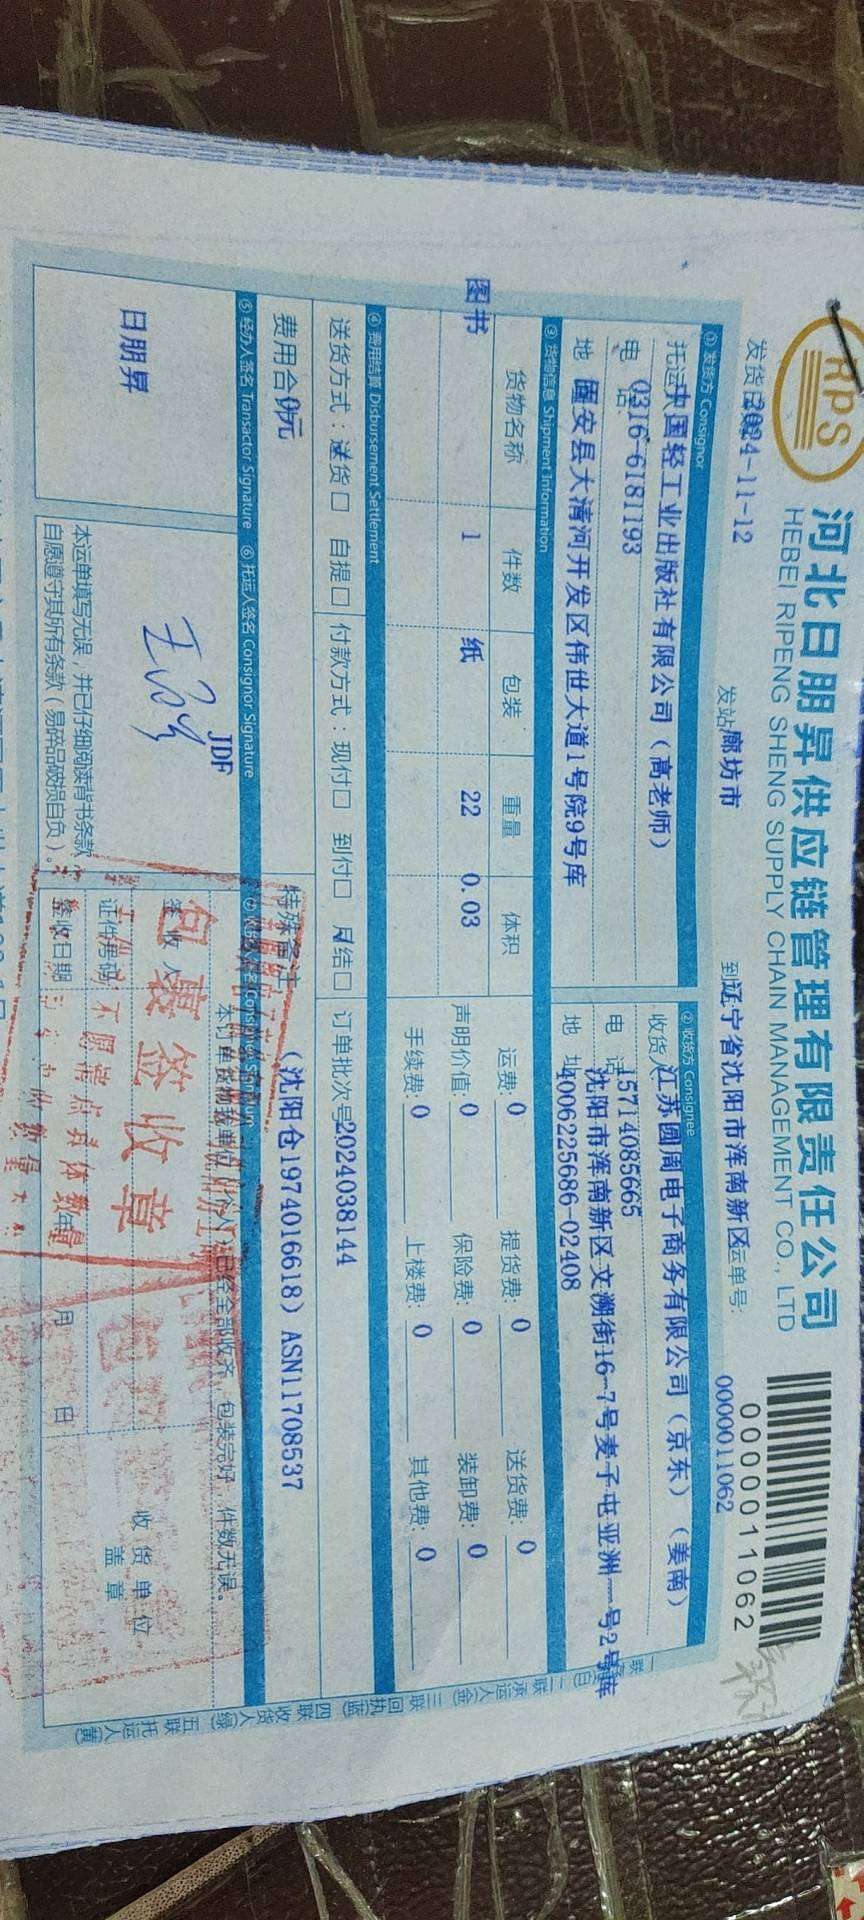 RPS
河北日朋昇供应链管理有限责任公司
HEBEI RIPENG SHENG SUPPLY CHAIN MANAGEMENT CO., LTD
0000011062
发货日期2024-11-12 发站廊坊市 到辽宁省沈阳市浑南新区云单号: 0000011062
① 发货方 Consignor
托运中国轻工业出版社有限公司（高老师）
电话 0316-6181193
地 固安县大清河开发区伟世大道1号院9号库
② 收货方 Consignee
收货人江苏圆周电子商务有限公司（京东）（姜南）
电话15714085665
沈阳市浑南新区文溯街16-7号麦子屯亚洲一号2号库
地址4006225686-02408
③ 货物信息 Shipment Information
货物名称 件数 包装 重量 体积
图书 1 纸 22 0.03
运费: 0 提货费: 0 送货费: 0
声明价值: 0 保险费: 0 装卸费: 0
手续费: 0 上楼费: 0 其他费: 0
④ 费用结算 Disbursement Settlement
送货方式：送货□ 自提□ 付款方式：现付□ 到付□ 月结□ 订单批次号2024038144
费用合0元 特殊备注 (沈阳仓1974016618) ASN11708537
⑤ 经办人签名 Transactor Signature ⑥ 托运人签名 Consignor Signature Consignee Signature
日朋昇
JDF
本运单填写无误，并已仔细阅读背书条款
自愿遵守其所有条款（易碎品破损自负）。
已经全部收齐，包装完好，件数无误。
签收人
证件号码
签收日期 年 月 日
收货单位
盖章
包裹签收章
不愿清点具体数量
一联 白
二联 承运人（金）
三联 回执（蓝）
四联 收货人（绿）
五联 托运人（黄）